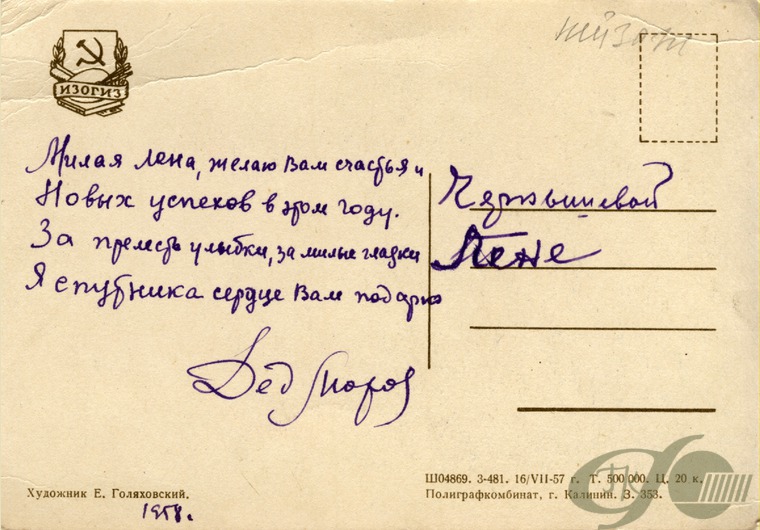 ИЗОГИЗ
Милая Лена, желаю Вам счастья и
Новых успехов в этом году.
За прелесть улыбки, за милые глазки
Я спутника сердце Вам подарю
Дед Мороз
Чернышевой
Лене
Художник Е. Голяховский.
1958.
Ш04869. 3-481. 16/VII-57 г. Т. 500 000. Ц. 20 к.
Полиграфкомбинат, г. Калинин. З. 353.